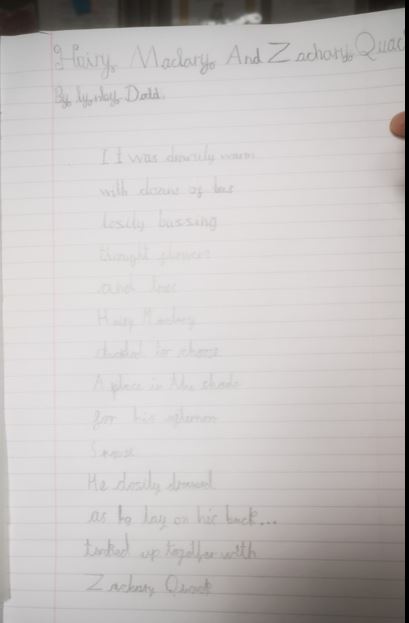 Hairy Maclary And Zachary Quac
By lynley Dodd.
I I was drowsily warm
with dozens of bees
losily bussing
thought flowers
and tree
Hairy Maclary
decided to choose
A place in the shade
for his afternoon
Snooze
He dosily drowsed
as he lay on his back...
tucked up together with
Zachary Quack